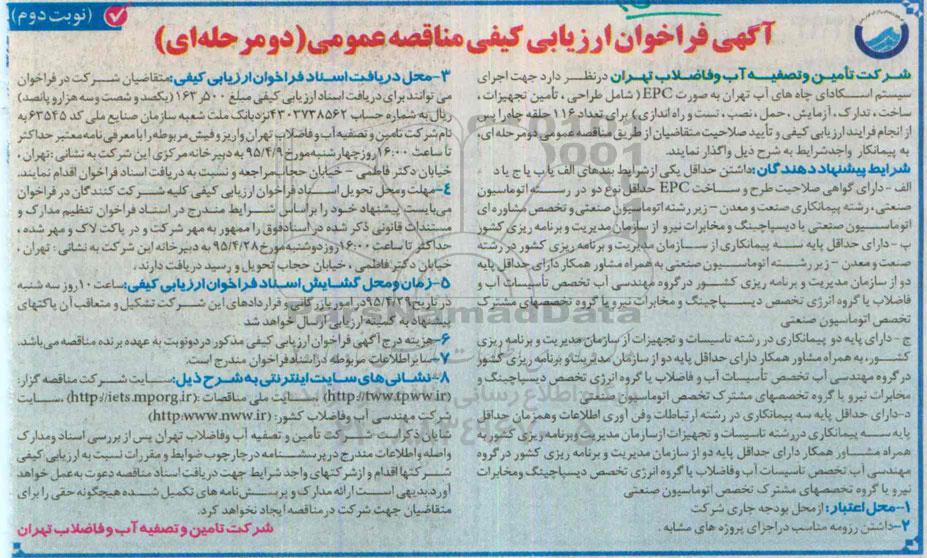 (نوبت دوم)
آگهی فراخوان ارزیابی کیفی مناقصه عمومی (دومرحله‌ای)
شرکت تأمین وتصفیه آب وفاضلاب تهران درنظر دارد جهت اجرای
سیستم اسکادای چاه های آب تهران به صورت EPC (شامل طراحی ، تأمین تجهیزات ،
ساخت ، تدارک ، آزمایش ، حمل ، نصب ، تست و راه اندازی) برای تعداد ۱۱۶ حلقه چاه را پس
از انجام فرایند ارزیابی کیفی و تأیید صلاحیت متقاضیان از طریق مناقصه عمومی دومرحله ای،
به پیمانکار واجدشرایط به شرح ذیل واگذار نمایند.
شرایط پیشنهاد دهندگان: داشتن حداقل یکی از شرایط بندهای الف یا ب یا ج یا د
الف - دارای گواهی صلاحیت طرح و ساخت EPC حداقل نوع دو در رشته اتوماسیون
صنعتی ، رشته پیمانکاری صنعت و معدن - زیر رشته اتوماسیون صنعتی و تخصص مشاوره ای
اتوماسیون صنعتی یا دیسپاچینگ و مخابرات نیرو از سازمان مدیریت و برنامه ریزی کشور
ب - دارای حداقل پایه سه پیمانکاری از سازمان مدیریت و برنامه ریزی کشور در رشته
صنعت و معدن - زیر رشته اتوماسیون صنعتی به همراه مشاور همکار دارای حداقل پایه
دو از سازمان مدیریت و برنامه ریزی کشور در گروه مهندسی آب تخصص تأسیسات آب و
فاضلاب یا گروه انرژی تخصص دیسپاچینگ و مخابرات نیرو یا گروه تخصصهای مشترک
تخصص اتوماسیون صنعتی
ج - دارای پایه دو پیمانکاری در رشته تاسیسات و تجهیزات از سازمان مدیریت و برنامه ریزی
کشور، به همراه مشاور همکار دارای حداقل پایه دو از سازمان مدیریت و برنامه ریزی کشور
در گروه مهندسی آب تخصص تأسیسات آب و فاضلاب یا گروه انرژی تخصص دیسپاچینگ و
مخابرات نیرو یا گروه تخصصهای مشترک تخصص اتوماسیون صنعتی
د- دارای حداقل پایه سه پیمانکاری در رشته ارتباطات وفن آوری اطلاعات وهمزمان حداقل
پایه سه پیمانکاری دررشته تاسیسات و تجهیزات ازسازمان مدیریت وبرنامه ریزی کشور به
همراه مشاور همکار دارای حداقل پایه دو از سازمان مدیریت و برنامه ریزی کشور در گروه
مهندسی آب تخصص تاسیسات آب وفاضلاب یا گروه انرژی تخصص دیسپاچینگ ومخابرات
نیرو یا گروه تخصصهای مشترک تخصص اتوماسیون صنعتی
۱-محل اعتبار: ازمحل بودجه جاری شرکت
۲-داشتن رزومه مناسب دراجرای پروژه های مشابه .
۳-محل دریافت اسناد فراخوان ارزیابی کیفی: متقاضیان شرکت در فراخوان
می توانند برای دریافت اسناد ارزیابی کیفی مبلغ ۱۶۳٫۵۰۰ (یکصد و شصت و سه هزار و پانصد)
ریال به شماره حساب ۴۳۰۲۷۳۸۵۶۲ نزدبانک ملت شعبه سازمان صنایع ملی کد ۶۳۵۴۵ به
نام شرکت تامین و تصفیه آب و فاضلاب تهران واریز و فیش مربوطه را با معرفی نامه معتبر حداکثر
تا ساعت ۱۶:۰۰ روز چهارشنبه مورخ ۹۵/۴/۹ به دبیرخانه مرکزی این شرکت به نشانی : تهران ،
خیابان دکتر فاطمی - خیابان حجاب مراجعه و نسبت به دریافت اسناد فراخوان اقدام نمایند.
۴-مهلت ومحل تحویل اسناد فراخوان ارزیابی کیفی کلیه شرکت کنندگان در فراخوان
می‌بایست پیشنهاد خود را براساس شرایط مندرج در اسناد فراخوان تنظیم مدارک و
مستندات قانونی ذکر شده در اسنادفوق را ممهور به مهر شرکت و در پاکت لاک و مهر شده ،
حداکثر تا ساعت ۱۶:۰۰ روز دوشنبه مورخ ۹۵/۴/۲۸ به دبیرخانه این شرکت به نشانی : تهران ،
خیابان دکتر فاطمی ، خیابان حجاب تحویل و رسید دریافت دارند.
۵-زمان و محل گشایش اسناد فراخوان ارزیابی کیفی: ساعت ۱۰ روز سه شنبه
در تاریخ ۹۵/۴/۲۹ در امور بازرگانی و قراردادهای این شرکت تشکیل و متعاقب آن پاکتهای
پیشنهاد به کمیته ارزیابی ارسال خواهد شد
۶-هزینه درج آگهی فراخوان ارزیابی کیفی مذکور در دونوبت به عهده برنده مناقصه می‌باشد.
۷-سایر اطلاعات مربوطه در اسناد فراخوان مندرج است.
۸-نشانی های سایت اینترنتی به شرح ذیل: سایت شرکت مناقصه گزار:
(http://tww.tpww.ir) سایت ملی مناقصات : (http://iets.mporg.ir) ، سایت
شرکت مهندسی آب وفاضلاب کشور: (http:www.nww.ir)
شایان ذکر است شرکت تأمین و تصفیه آب وفاضلاب تهران پس از بررسی اسناد ومدارک
واصله واطلاعات مندرج در پرسشنامه در چارچوب ضوابط و مقررات نسبت به ارزیابی کیفی
شرکتها اقدام و ازشرکتهای واجد شرایط جهت دریافت اسناد مناقصه دعوت به عمل خواهد
آورد.بدیهی است ارائه مدارک و پرسش نامه های تکمیل شده هیچگونه حقی را برای
متقاضیان جهت شرکت درمناقصه ایجاد نخواهد کرد.
شرکت تامین و تصفیه آب و فاضلاب تهران
ParsNamadData